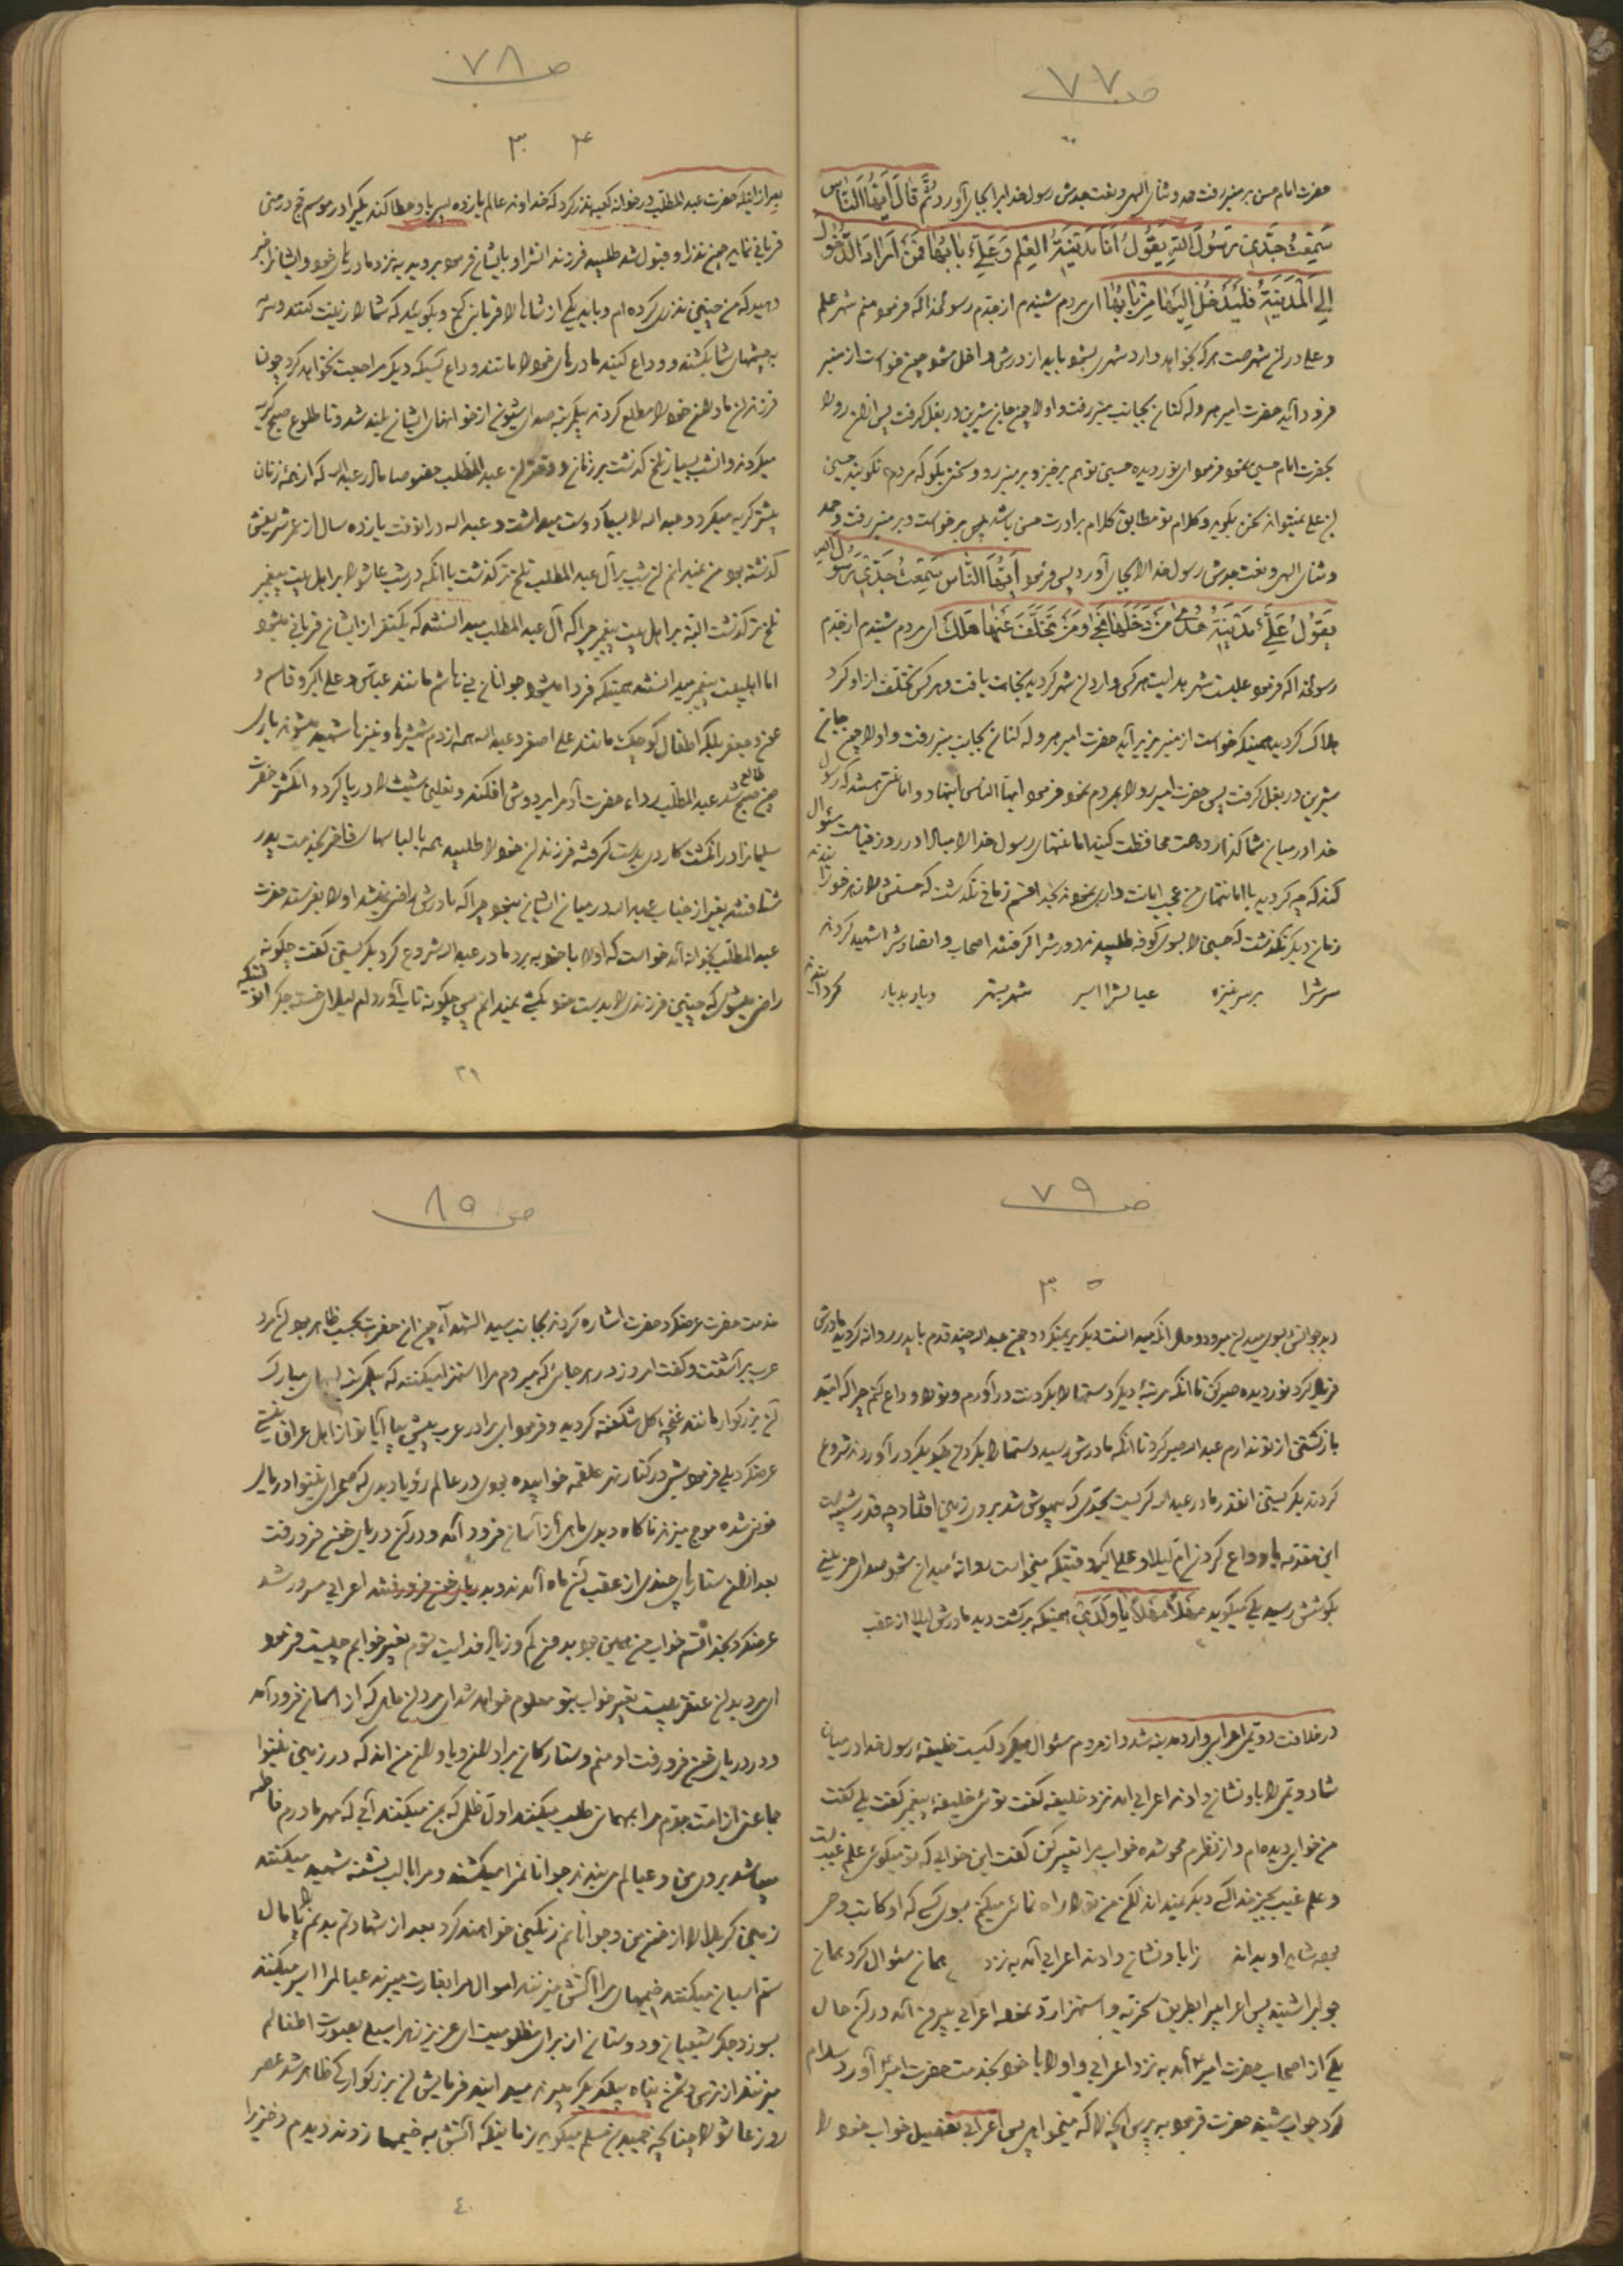 ص ۷۷
حضرت امام حسن بر منبر رفت حمد و ثنای الهی و نعت جدش رسول خدا را بجای آورد ثُمَّ قالَ اَیُّهَا النّاس
سَمِعْتُ جَدّی رَسُولَ اللهِ یَقُولُ اَنَا مَدینَةُ العِلمِ وَ عَلیٌّ بابُها فَمَن اَرادَ الدُّخُولَ
اِلَی المَدینَةِ فَلیَدخُل اِلَیها مِن بابِها ای مردم شنیدم از جدم رسولخدا که فرمود منم شهر علم
و علی در آن شهر است هر که بخواهد وارد شهر بشود باید از درش داخل شود چون خواست از منبر
فرود آید حضرت امیر هروله کنان بجانب منبر رفت و او را چون جان شیرین در بغل گرفت پس از آن رو را
بحضرت امام حسین نمود فرمود ای نور دیده حسین تو هم برخیز و بر منبر رو و سخنی بگو که مردم نگویند حسین
بن علی نمیتواند سخن بگوید و کلام تو مطابق کلام برادرت حسن باشد پس برخواست و بر منبر رفت و حمد
و ثنای الهی و نعت جدش رسول خدا را بجای آورد پس فرمود اَیُّهَا النّاس سَمِعْتُ جَدّی رَسُولَ اللهِ
یَقُولُ عَلیٌّ مَدینَةُ هُدیً مَن دَخَلَها نَجا وَ مَن تَخَلَّفَ عَنها هَلَکَ ای مردم شنیدم از جدم
رسولخدا که فرمود علیست شهر هدایت هر کس وارد آن شهر گردید نجات یافت و هر کس تخلف از او کرد
هلاک گردید همینکه خواست از منبر بزیر آید حضرت امیر هروله کنان بجانب منبر رفت و او را چون جان
شیرین در بغل گرفت پس حضرت امیر رو را بمردم نمود فرمود ایها الناس اینها دو امانتی هستند که رسول
خدا در میان شما گذارد همت محافظت کنید امانتهای رسول خدا را مبادا در روز قیامت سئوال
کند که چه کردید با امانتهای من عجب امانت داری نمودند بخدا قسم زمانی نگذشت که حسنش را زهر خورانیدند
زمان دیگر نگذشت که حسین را بسوی کوفه طلبیدند دورش را گرفتند اصحاب و انصارش را شهید کردند
سرش را بر سر نیزه عیالش را اسیر شهر بشهر دیار بدیار گردانیدند
ص ۷۸
۳۴
بعد از اینکه حضرت عبدالمطلب در خانه کعبه نذر کرد که خداوند عالم یازده پسر باو عطا کند یکی را در موسم حج در منی
قربانی نماید چون نذر او قبول شد طلبید فرزندانش را و بایشان فرمود بروید به نزد مادرهای خود و ایشان را خبر
دهید که من چنین نذری کرده ام و باید یکی از شما را قربانی کنم و بگوئید که شما را زینت کنند و سرمه
به چشمهای شما بکشند و وداع کنید مادرهای خود را مانند وداع کسیکه دیگر مراجعت نخواهد کرد چون
فرزندان مادرهای خود را مطلع کردند یکمرتبه صدای شیون از خانهای ایشان بلند شد و تا طلوع صبح گریه
میکردند و آنشب بسیار تلخ گذشت بر زنان و دختران عبدالمطلب خصوصا مادر عبدالله که از همه زنان
بیشتر گریه میکرد و عبدالله را بسیار دوست میداشت و عبدالله در آنوقت یازده سال از عمر شریفش
گذشته بود من نمیدانم آن شب بر آل عبدالمطلب تلخ تر گذشت یا آنکه در شب عاشورا بر اهل بیت پیغمبر
تلخ تر گذشت البته بر اهل بیت پیغمبر چرا که آل عبدالمطلب میدانستند که یکنفر از ایشان قربانی میشود
اما اهلبیت پیغمبر میدانستند همینکه فردا میشود جوانان بنی هاشم مانند عباس و علی اکبر و قاسم و
عون و جعفر بلکه اطفال کوچک مانند علی اصغر و عبدالله همه از دم شمشیرها و نیزها شهید میشوند باری
چون صبح طالع شد عبدالمطلب رداء حضرت آدم را بر دوش افکند و نعلین شیث را در پا کرد و انگشتر حضرت
سلیمان را در انگشت کاردی بدست گرفته فرزندان خود را طلبید همه با لباسهای فاخر بخدمت پدر
شتافتند بغیر از جناب عبدالله در میان ایشان نبود چرا که مادرش راضی نمیشد او را بفرستد حضرت
عبدالمطلب بخانه آمد خواست که او را با خود به برد مادر عبدالله شروع کرد بگریستن گفت چگونه
راضی میشوی که چنین فرزندی را بدست خود بکشی نمیدانم پس چگونه تاب آورد ام لیلای خسته جگر آنوقتیکه
۳۹
ص ۷۹
۳۵
دید جوانش بسوی میدان میرود و حال آنکه میدانست دیگر بر نمیگردد چون عبدالله چند قدم با پدر روانه گردید مادرش
فریاد کرد نور دیده صبر کن تا آنکه مرتبهٔ دیگر دستها را بگردنت در آورم و تو را وداع کنم چرا که امید
بازگشتن از تو ندارم عبدالله صبر کرد تا آنکه مادرش رسید دستها را بگردن یکدیگر در آوردند شروع
کردند بگریستن آنقدر مادر عبدالله گریست بحدی که بیهوش شد بر روی زمین افتاد چه قدر شبیه است
این مقدمه با وداع کردن ام لیلا و علی اکبر وقتیکه میخواست روانهٔ میدان شود صدای حزینی
بگوشش رسید یکی میگوید مَهلاً مَهلاً یا وَلَدی همینکه برگشت دید مادرش لیلا از عقب
در خلافت دویمی اعرابی وارد مدینه شد و از مردم سئوال میکرد کیست خلیفهٔ رسول خدا در میان
شما دویمی را باو نشان دادند اعرابی آمد نزد خلیفه گفت توئی خلیفهٔ پیغمبر گفت بلی گفت
من خوابی دیده ام و از نظرم محو شده خواب مرا تعبیر کن گفت این خوابی که تو میگوئی علم غیبست
و علم غیب بجز خدا کسی دیگر نمیداند لکن من تو را راه نمائی میکنم بسوی کسی که او کاتب وحی
بوده شاید او بداند باو نشان دادند اعرابی آمد به نزد عثمان سئوال کرد عثمان
جوابرا شنید پس اعرابی را بطریق سخریه و استهزا رد نمود اعرابی بیرون آمد در آن حال
یکی از اصحاب حضرت امیر آمد به نزد اعرابی و او را با خود بخدمت حضرت امیر آورد سلام
کرد جواب شنید حضرت فرمود به پرس آنچه را که میخواهی پس اعرابی تفصیل خواب خود را
ص ۸۰
خدمت حضرت عرضکرد حضرت اشاره کردند بجانب سیدالشهداء چون آن حضرت بحسب ظاهر بود آن مرد
عرب برآشفت و گفت امروز در هر جائی که میروم مرا استهزا میکنند که یکمرتبه لبهای مبارک
آن بزرگوار مانند غنچه گل شکفته گردید و فرمود ای برادر عرب پیش بیا آیا تو از اهل عراق نیستی
عرضکرد بلی فرمود شبی در کنار نهر علقمه خوابیده بودی در عالم رؤیا دیدی که صحرای نینوا دریای
خونی شده موج میزند ناگاه دیدی ماهی از آسمان فرود آمد و در آن دریای خون فرو رفت
بعد از آن ستارهای چندی از عقب آن ماه آمدند و بدریای خون فرو رفتند اعرابی مسرور شد
عرضکرد بخدا قسم خواب من همین بود بدون کم و زیاد فدایت شوم تعبیر خوابم چیست فرمود
ای مرد بدان عنقریب تعبیر خواب بتو معلوم خواهد شد ای مرد آن ماهی که از آسمان فرود آمد
و در دریای خون فرو رفت او منم و ستارگان برادران و یاوران من اند که در زمین نینوا
جماعتی از امت جدم مرا بمهمانی طلب میکنند اول ظلمی که بمن میکنند آبی که مهر مادرم فاطمه
میباشد بروی من و عیالم می بندند جوانانم را میکشند و مرا با لب تشنه شهید میکنند
زمین کربلا را از خون من و جوانانم رنگین خواهند کرد بعد از شهادتم بدنم را پامال
ستم اسبان میکنند خیمهای مرا آتش میزنند اموال مرا بغارت میبرند عیالم را اسیر میکنند
بسوزد جگر شیعیان و دوستان از برای مظلومیت ای عزیز زهرا سیلی بصورت اطفالم
میزنند از ترس دشمن پناه بیکدیگر میبرند میدانید فرمایش آن بزرگوار کی ظاهر شد عصر
روز عاشورا چنانچه حمید بن مسلم میگوید زمانیکه آتش به خیمها زدند دیدم دختری را
٤۰